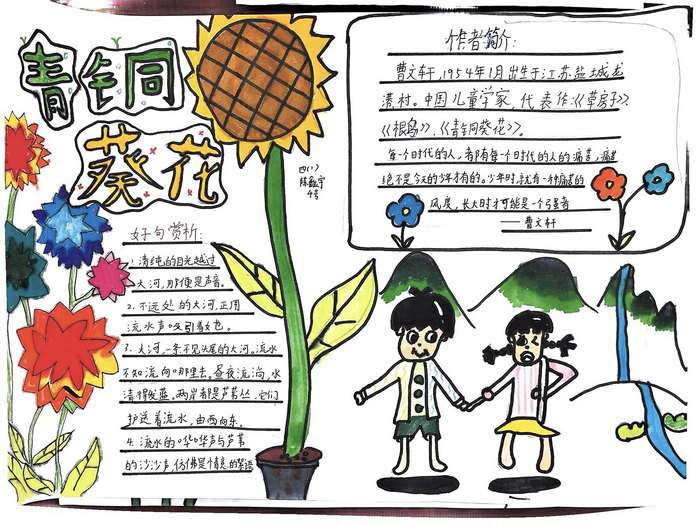 青铜
葵花
四(1)
陈
4号
作者简介:
曹文轩,1954年1月出生于江苏盐城龙
港村。中国儿童学家,代表作:《草房子》、
《根鸟》、《青铜葵花》。
每一个时代的人,都有每一个时代的人的痛苦,痛苦
绝不是今天的少年才有的。少年时,就有一种痛苦的
风度,长大时才可能是一个强者
——曹文轩
好句赏析:
1. 清纯的目光越过
大河,那便是声音。
2. 不远处的大河,正用
流水声吸引着女也。
3. 大河,一条不见头尾的大河。流水
不知流向哪里去。昼夜流淌,水
清得发蓝。两岸都是芦苇丛,它们
护送着流水,由西向东,
4. 流水的哗哗声与芦苇
的沙沙声,仿佛是情意的絮语